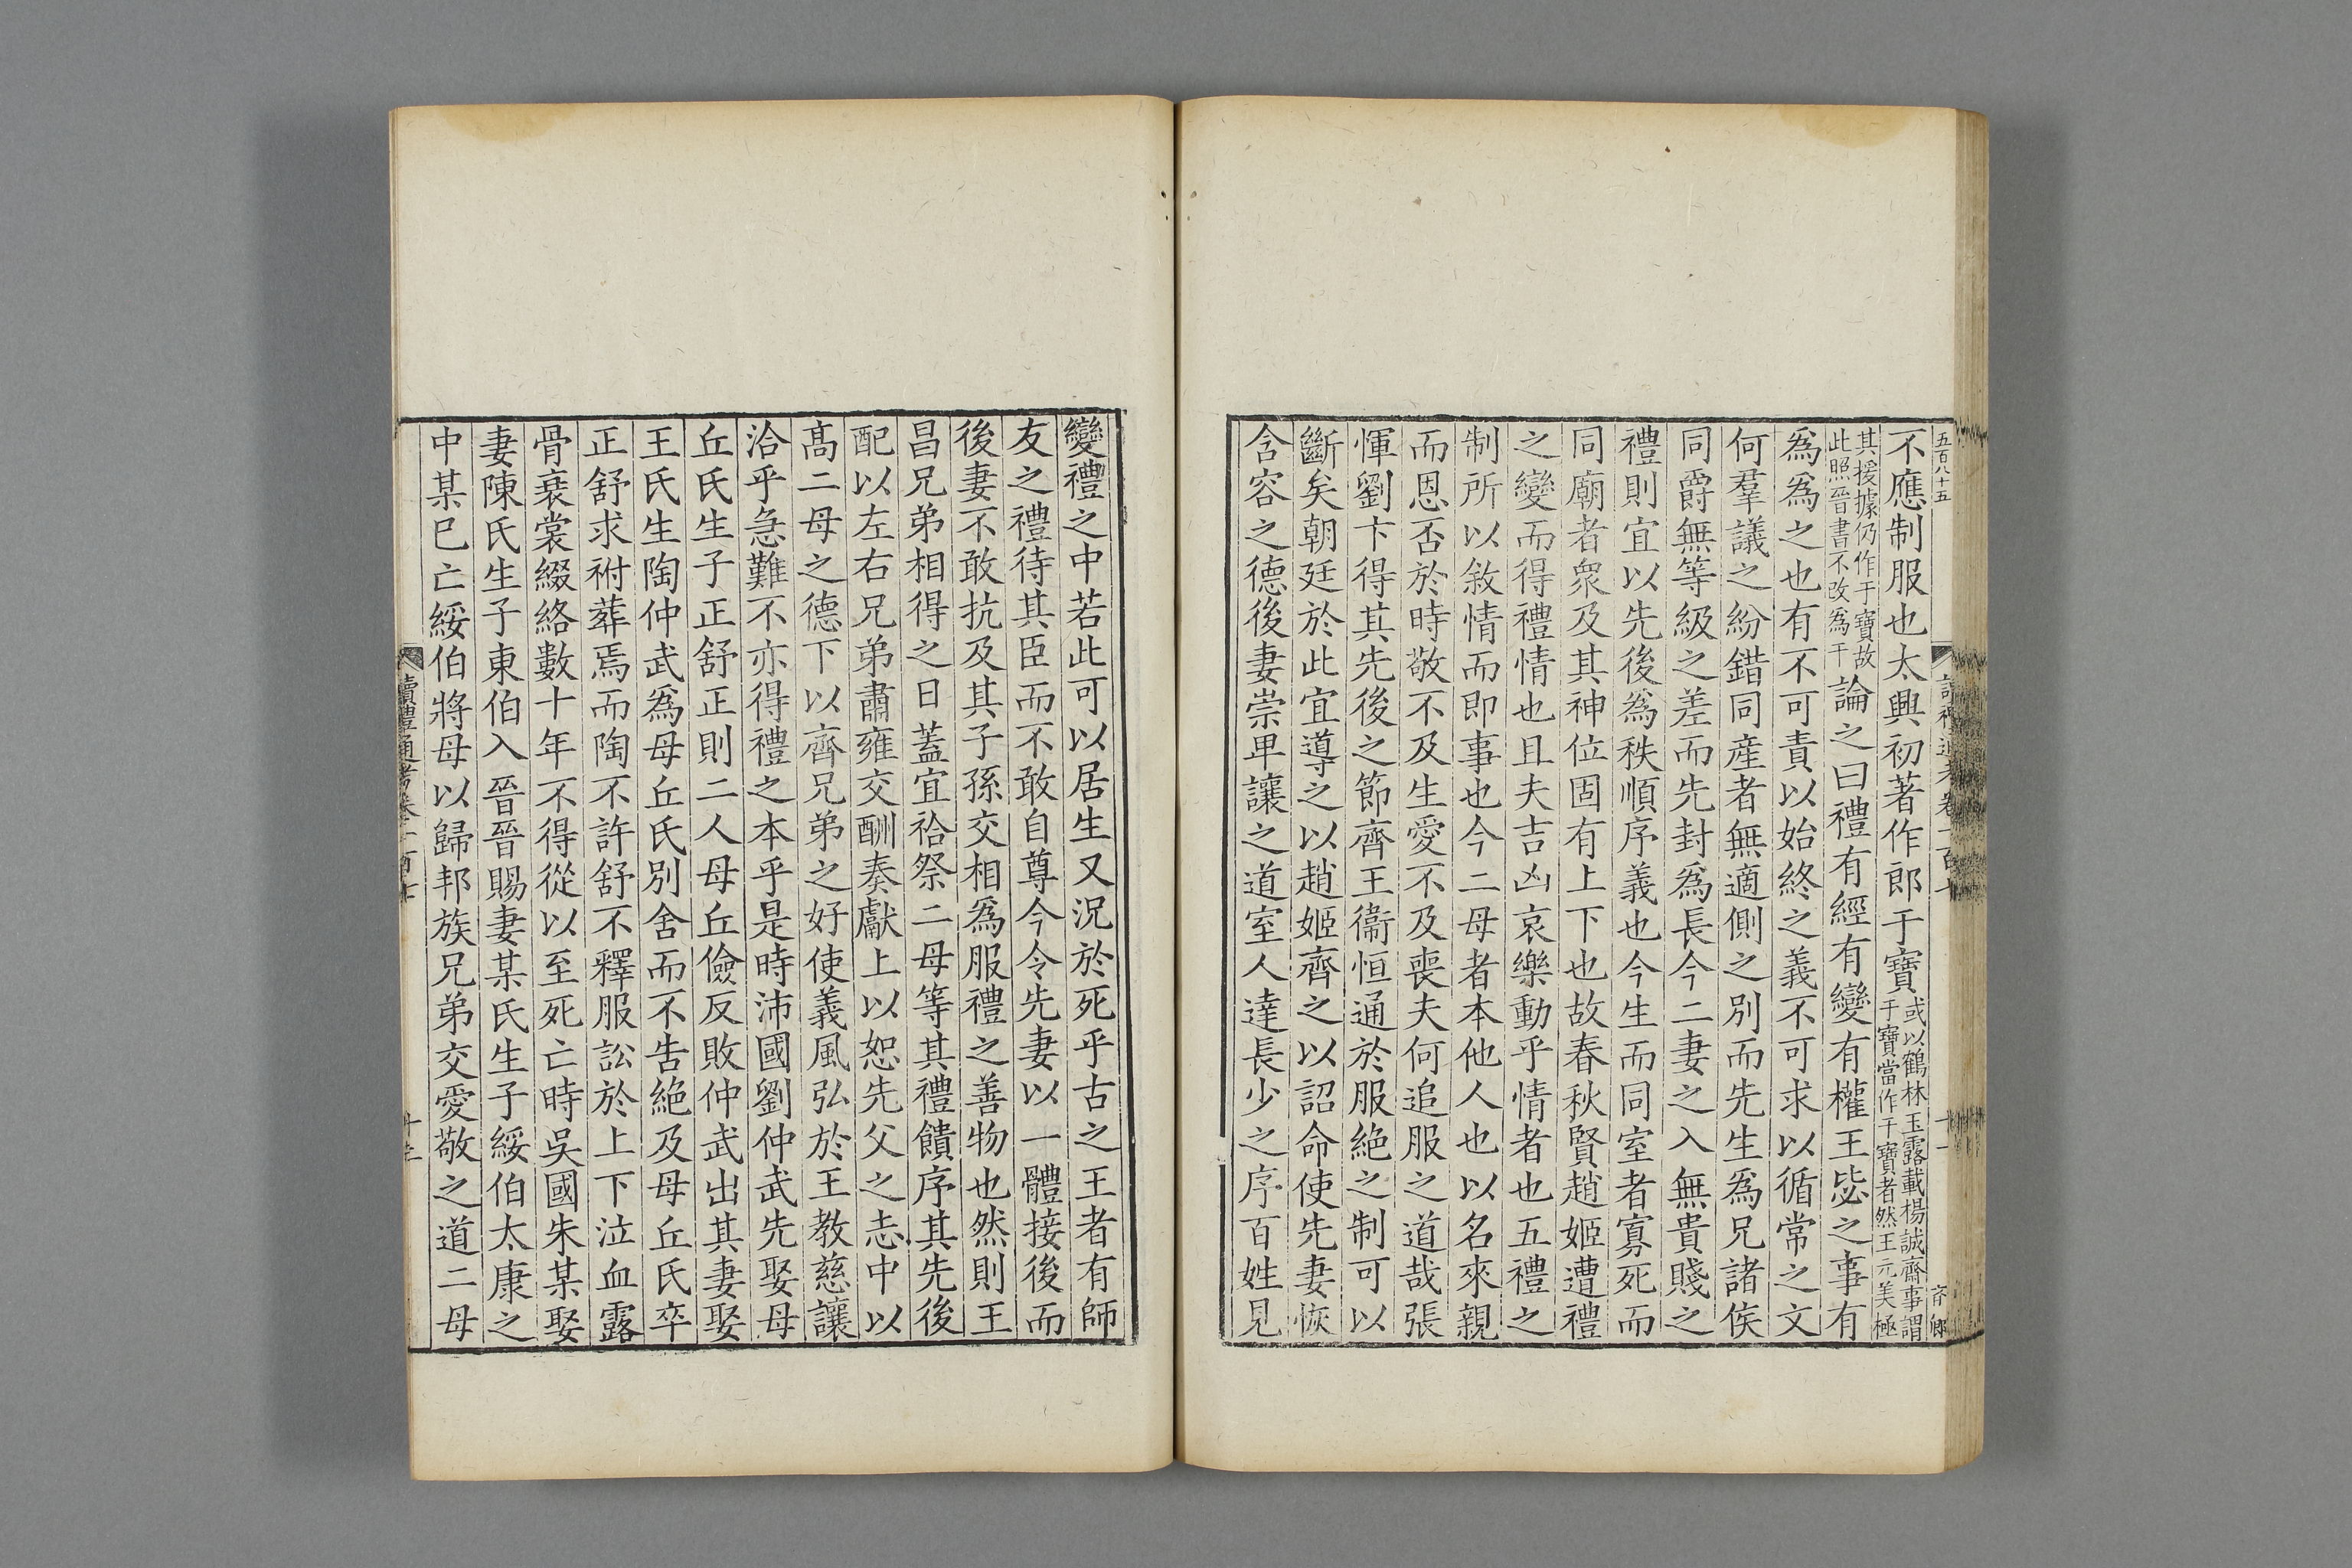 五百八十五
不應制服也太興初著作郎于寶或以鶴林玉露載楊誠齋事謂于寶當作干寶者然王元美極
其援據仍作于寶故此照晉書不改爲干論之曰禮有經有變有權王毖之事有
爲爲之也有不可責以始終之義不可求以循常之文
何羣議之紛錯同産者無適側之別而先生爲兄諸侯
同爵無等級之差而先封爲長今二妻之入無貴賤之
禮則宜以先後爲秩順序義也今生而同室者寡死而
同廟者衆及其神位固有上下也故春秋賢趙姬遭禮
之變而得禮情也且夫吉凶哀樂動乎情者也五禮之
制所以敘情而即事也今二母者本他人也以名來親
而恩否於時敬不及生愛不及喪夫何追服之道哉張
惲劉卞得其先後之節齊王衞恒通於服絶之制可以
斷矣朝廷於此宜導之以趙姬齊之以詔命使先妻恢
含容之德後妻崇卑讓之道室人達長少之序百姓見
變禮之中若此可以居生又況於死乎古之王者有師
友之禮待其臣而不敢自尊今令先妻以一體接後而
後妻不敢抗及其子孫交相爲服禮之善物也然則王
昌兄弟相得之日蓋宜祫祭二母等其禮饋序其先後
配以左右兄弟肅雍交酬奏獻上以恕先父之志中以
高二母之德下以齊兄弟之好使義風弘於王教慈讓
洽乎急難不亦得禮之本乎是時沛國劉仲武先娶母
丘氏生子正舒正則二人母丘儉反敗仲武出其妻娶
王氏生陶仲武爲母丘氏別舍而不告絶及母丘氏卒
正舒求祔葬焉而陶不許舒不釋服訟於上下泣血露
骨衰裳綴絡數十年不得從以至死亡時吳國朱某娶
妻陳氏生子東伯入晉晉賜妻某氏生子綏伯太康之
中某已亡綏伯將母以歸邦族兄弟交愛敬之道二母
讀禮通考卷一百七